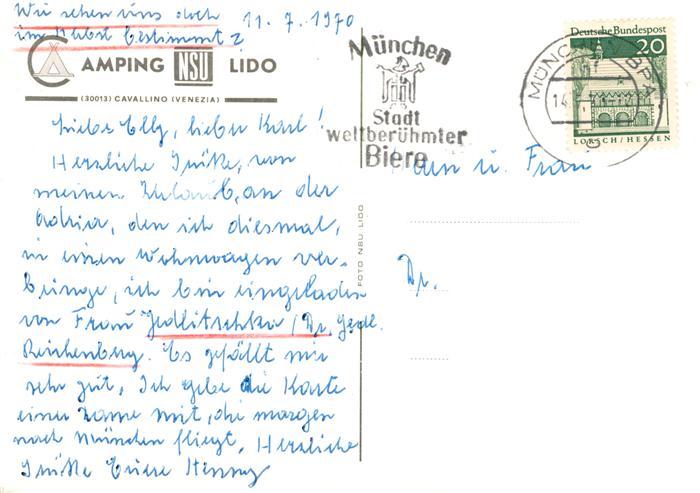 Wir sehen uns doch 11. 7. 1970
im Herbst bestimmt?
CAMPING NSU LIDO
(30013) CAVALLINO (VENEZIA)
Liebe Elly, lieber Karl!
Herzliche Grüße, von
meinem Urlaub, an der
Adria, den ich diesmal,
in einen Wohnwagen ver-
bringe, ich bin eingeladen
von Frau Jedlitschka / Dr. Jedl.
Reichenberg. Es gefällt mir
sehr gut, Ich gebe die Karte
einer Dame mit, die morgen
nach München fliegt, Herzliche
Grüße Euere Henny
FOTO NSU. LIDO
München
Stadt
weltberühmter
Biere
MÜNCHEN BPA
Deutsche Bundespost
20
LORSCH/HESSEN
u. Frau
Dr.